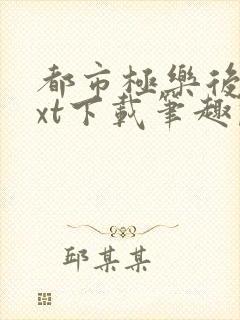 都市極樂後
xt下載筆趣
邱某某